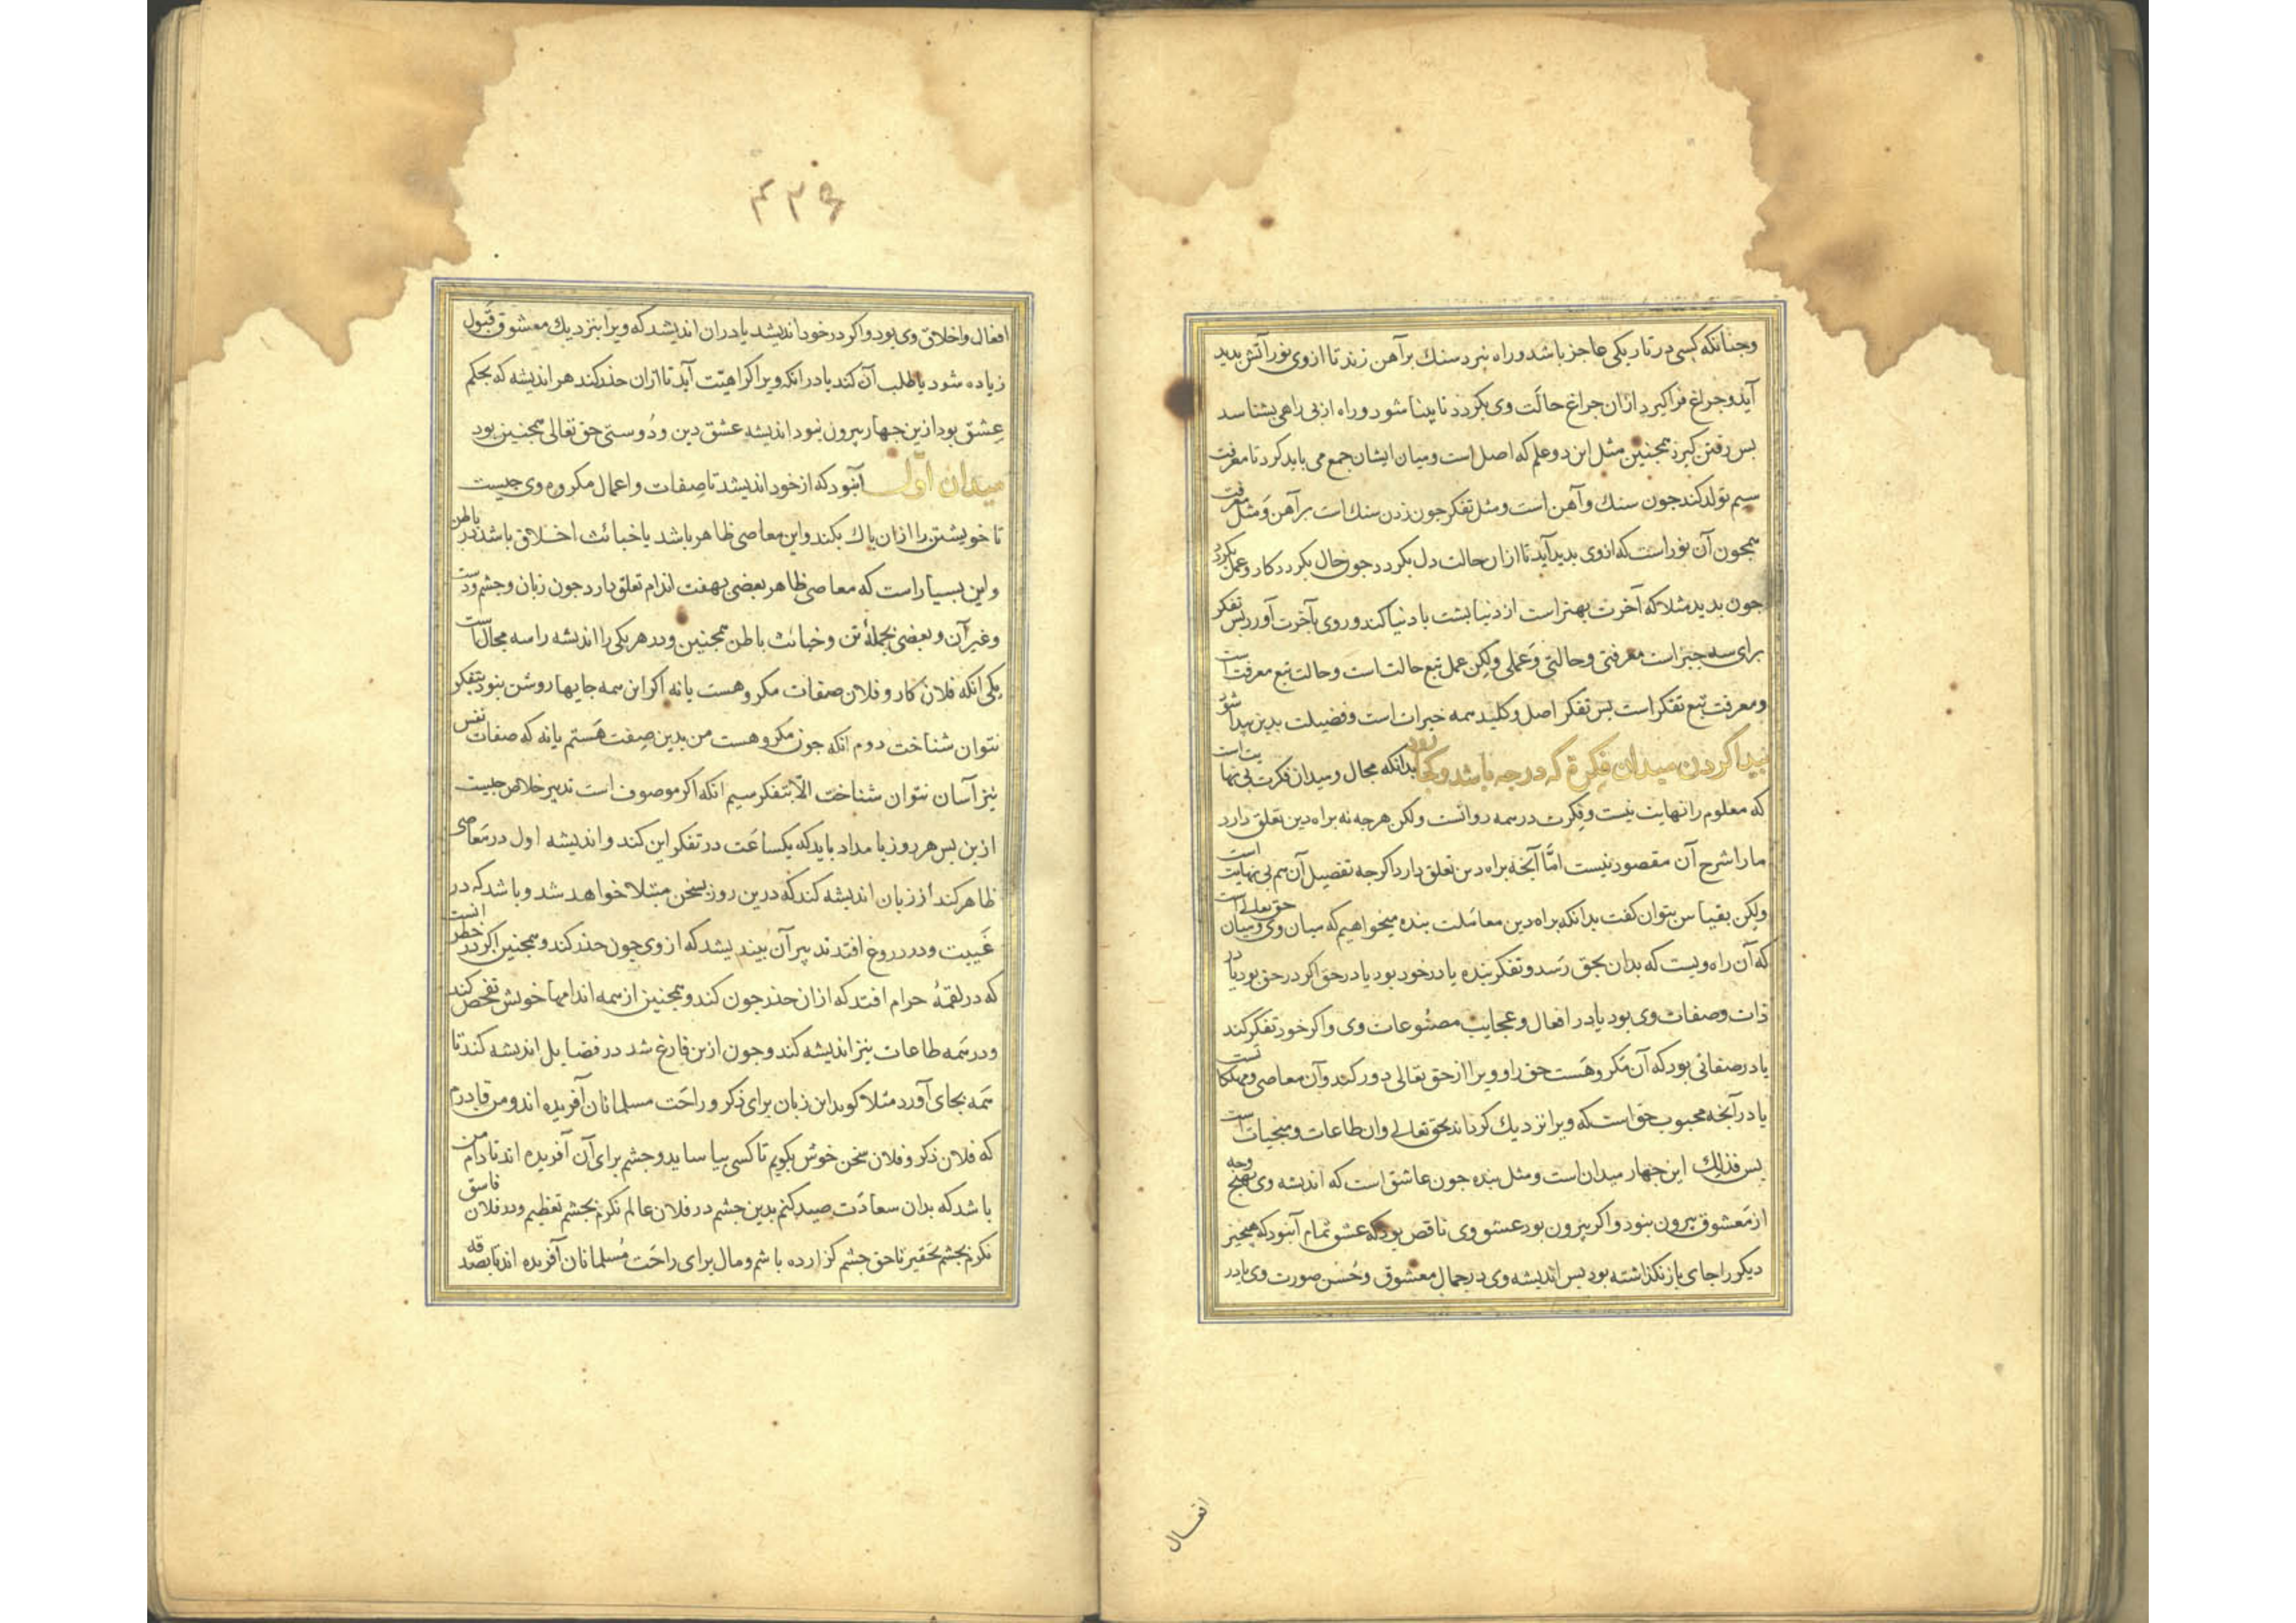 وجنانکه کسی در تاریکی عاجز باشد و راه نبرد سنك بر آهن زند تا از وی نور آتش بدید
آید و جراغ فراکیرد ازان جراغ حالت وی بکردد تا بینا شود و راه از بی راهی بشناسد
بس رفتن کیرد همجنین مثل این دو علم که اصل است و میان ایشان جمع می باید کرد تا معرفت
سیم تولد کند جون سنك و آهن است و مثل تفکر جون زدن سنك است بر آهن و مثل معرفت
همجون آن نور است که از وی بدید آید تا ازان حالت دل بکردد جون حال بکردد کار و عمل بکردد
جون بدید مثلا که آخرت بهتر است از دنیا بشت با دنیا کند و روی بآخرت آورد بس تفکر
برای سه جیز است معرفتی و حالتی و عملی ولکن عمل تبع حالت است و حالت تبع معرفت است
و معرفت تبع تفکر است بس تفکر اصل و کلید همه خیرات است و فضیلت بدین بیدا شود
بیدا کردن میدان فکرة که در جه باشد و کجا رود بدانکه مجال و میدان فکرت بی نهایت است
که معلوم را نهایت نیست و فکرت در همه روانست ولکن هرجه نه براه دین تعلق دارد
ما را شرح آن مقصود نیست امّا آنجه براه دین تعلق دارد اکرجه تفصیل آن هم بی نهایت است
ولکن بقیاس بتوان کفت بدانکه براه دین معاملت بنده میخواهیم که میان وی و میان حق تعالی است
که آن راه ویست که بدان بحق رسد و تفکر بنده یا در خود بود یا در حق اکر در حق بود یا در
ذات و صفات وی بود یا در افعال و عجایب مصنوعات وی و اکر خود تفکر کند
یا در صفاتی بود که آن مکروهست حق را و ویرا از حق تعالی دور کند و آن معاصی و مهلکاتست
یا در آنجه محبوب حق است که ویرا نزدیك کرداند بحق تعالی وان طاعات و منجیات است
بس فذلك این جهار میدان است و مثل بنده جون عاشق است که اندیشه وی بهیج وجه
از معشوق بیرون نبود و اکر بیرون بود عشق وی ناقص بود که عشق تمام آنبود که هیجیز
دیکر را جای باز نکذاشته بود بس اندیشه وی در جمال معشوق و حُسن صورت وی یا در
افعال
۴۳۶
افعال و اخلاق وی بود و اکر در خود اندیشد یا دران اندیشد که ویرا بنزدیك معشوق قبول
زیاده شود یا طلب آن کند یا در انکه ویرا کراهیّت آید تا ازان حذر کند هر اندیشه که بحکم
عِشق بود ازین جهار بیرون نبود اندیشه عشق دین و دُوستی حق تعالی همجنین بود
میدان اوّل آنبود که از خود اندیشد تا صِفات و اعمال مکروه وی جیست
تا خویشتن را ازان باك بکند و این معاصی ظاهر باشد یا خبائث اخلاق باشد در باطن
و این بسیار است که معاصی ظاهر بعضی بهفت اندام تعلق دارد جون زبان و جشم و دست
و غیر آن و بعضی بجملهٔ تن و خبائث باطن همجنین و در هر یکی را اندیشه را سه مجال است
یکی انکه فلان کار و فلان صفات مکروهست یا نه اکر این همه جایها روشن نبود بتفکر
نتوان شناخت دوم انکه جون مکروهست من بدین صِفت هَستم یا نه که صفات نفس
نیز آسان نتوان شناخت الّا بتفکر سیم انکه اکر موصوف است تدبیر خلاص جیست
از بن بس هر روز بامداد باید که یکساعَت در تفکر این کند و اندیشه اول در مَعاصی
ظاهر کند از زبان اندیشه کند که درین روز بسخن مبتلا خواهد شد و باشد که در
غَیبت و در دروغ افتد تدبیر آن بیندیشد که از وی جون حذر کند و همجنین اکر در خطر انست
که در لقمهٔ حرام افتد که ازان حذر جون کند و همجنین از همه اندامها خویش تفحص کند
و در همه طاعات نیز اندیشه کند و جون ازین فارغ شد در فضایل اندیشه کند تا
همه بجای آورد مثلا کوید این زبان برای ذکر و راحَت مسلمانان آفریده اند و من قادرم
که فلان ذکر و فلان سخن خوش بکویم تا کسی بیاساید و جشم برای آن آفریده اند تا دام من
باشد که بدان سعادَت صید کنم بدین جشم در فلان عالم نکرم بجشم تعظیم و در فلان فاسق
نکرم بجشم تحقیر تا حق جشم کزارده باشم و مال برای راحَت مُسلمانان آفریده اند تا بصدقه